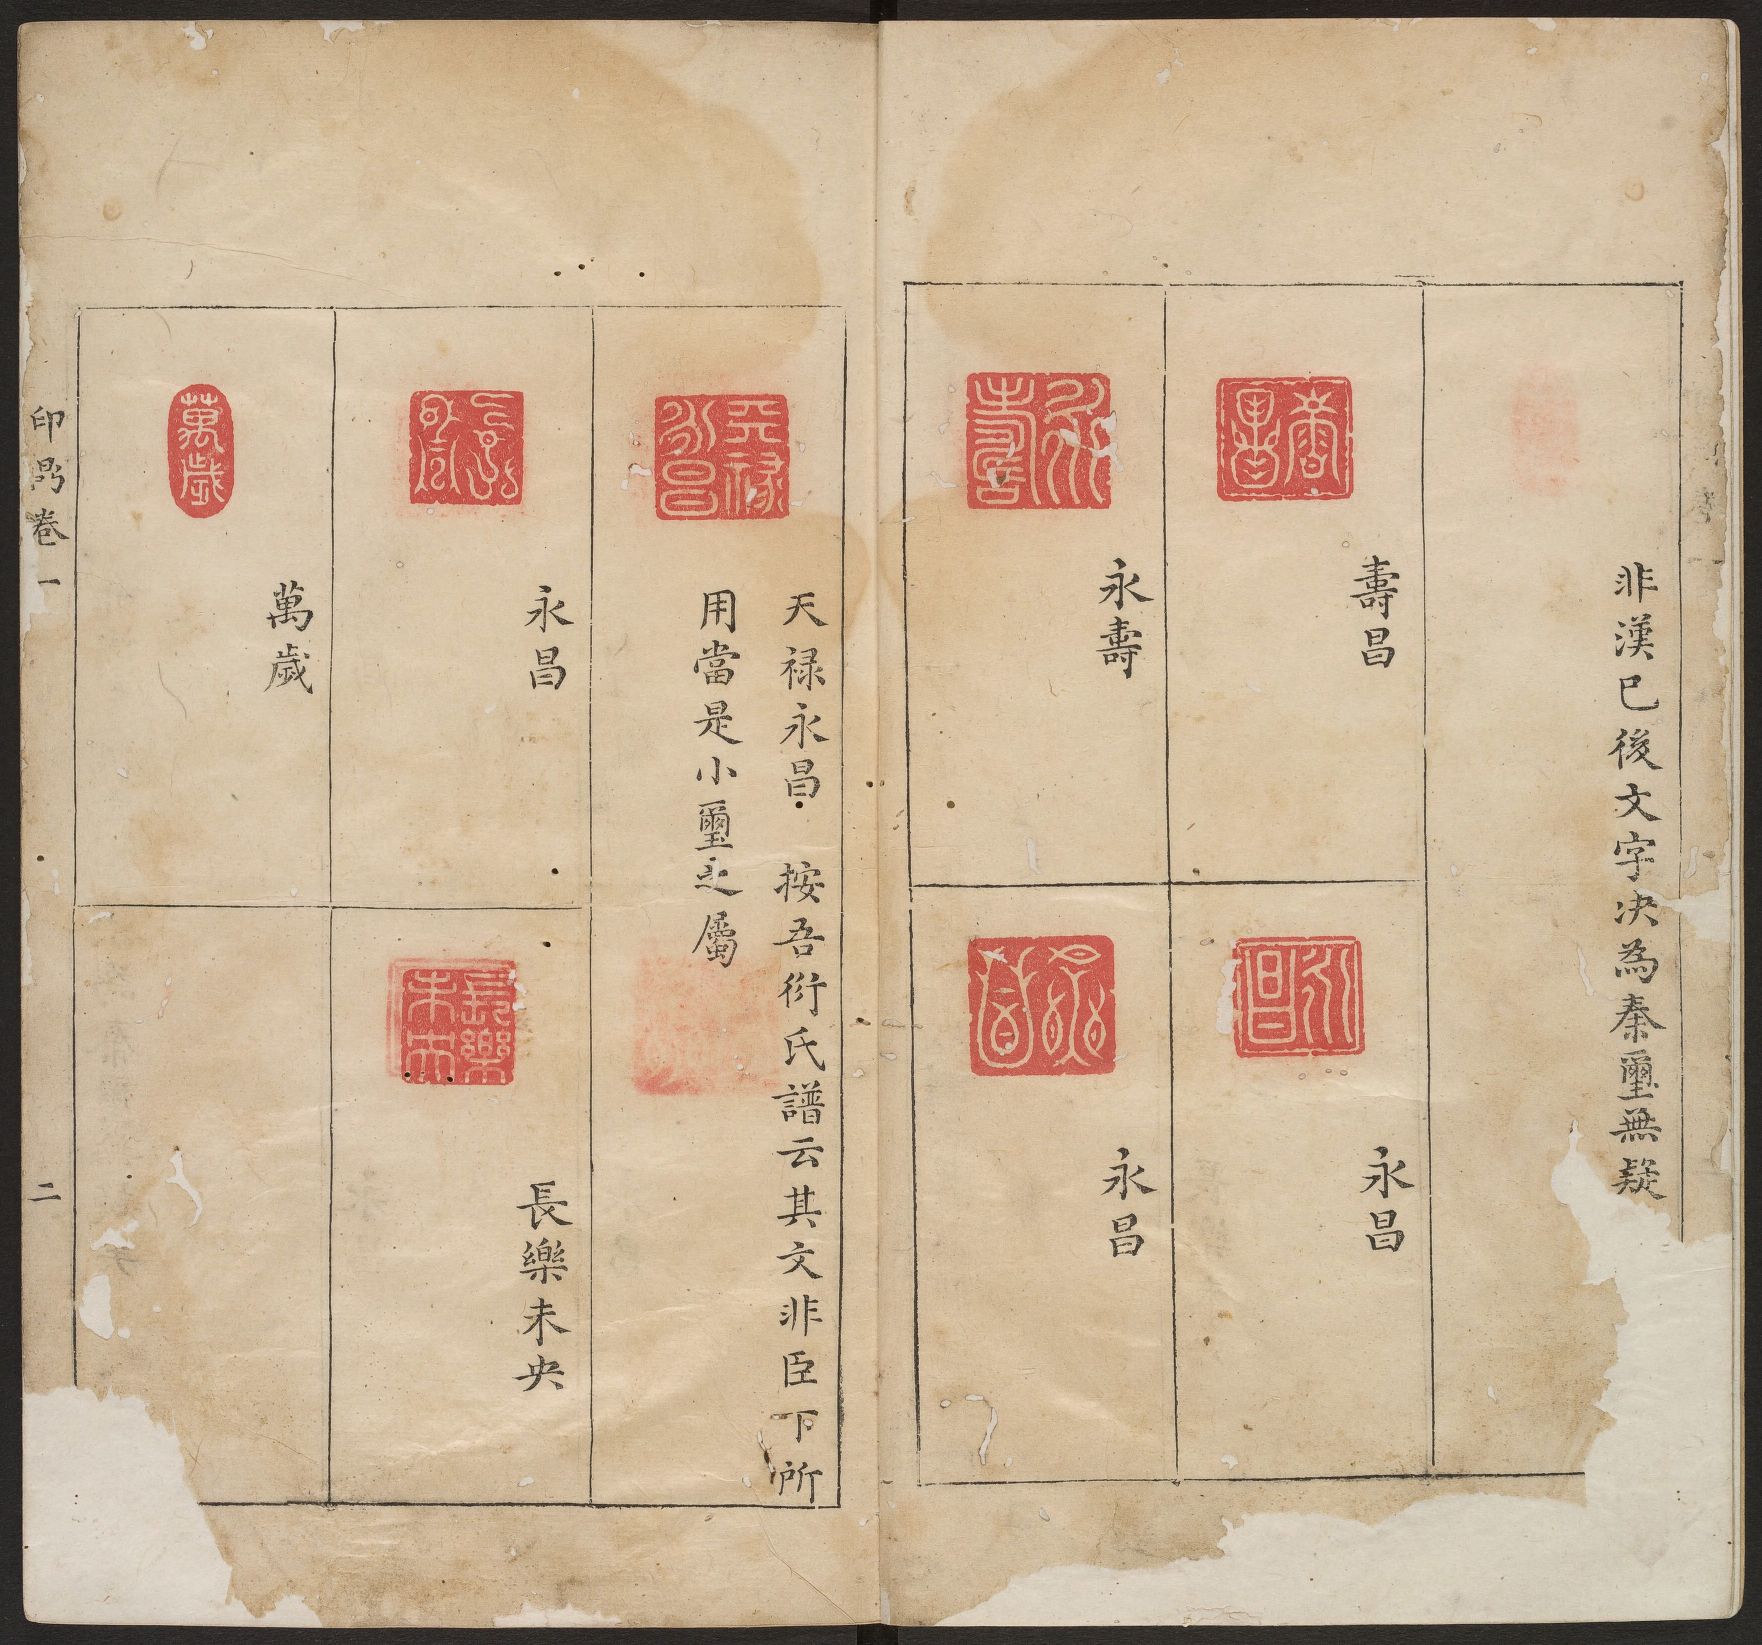 非漢已後文字决為秦璽無疑
壽昌
永昌
永壽
永昌
天禄永昌 按吾衍氏譜云其文非臣下所
用當是小璽之屬
永昌
長樂未央
萬歲
印鼎卷一 二